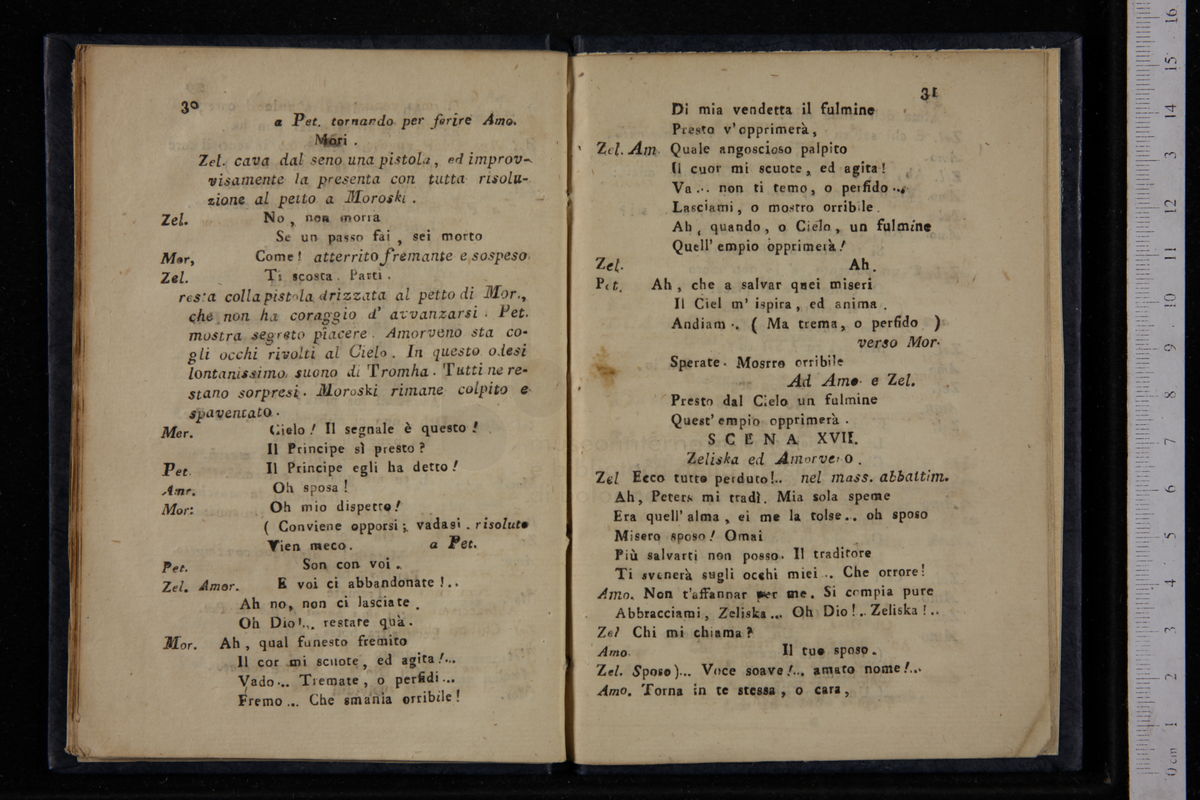 30
a Pet. tornando per ferire Amo.
Mori .
Zel. cava dal seno una pistola , ed improv-
visamente la presenta con tutta risolu-
zione al petto a Moroski .
Zel. No , non morra
Se un passo fai , sei morto
Mor, Come ! atterrito fremante e sospeso.
Zel. Ti scosta . Parti .
resta colla pistola drizzata al petto di Mor.,
che non ha coraggio d' avvanzarsi . Pet.
mostra segreto piacere . Amorveno sta co-
gli occhi rivolti al Cielo . In questo odesi
lontanissimo suono di Tromha . Tutti ne re-
stano sorpresi . Moroski rimane colpito e
spaventato .
Mer. Cielo ! Il segnale è questo !
Il Principe sì presto ?
Pet. Il Principe egli ha detto !
Amr. Oh sposa !
Mor: Oh mio dispetto !
( Conviene opporsi ; vadasi . risoluto
Vien meco . a Pet.
Pet. Son con voi .
Zel. Amor. E voi ci abbandonate ! . .
Ah no, non ci lasciate .
Oh Dio !... restate quà .
Mor. Ah , qual funesto fremito
Il cor mi scuote , ed agita !...
Vado ... Tremate , o perfidi ...
Fremo ... Che smania orribile !
31
Di mia vendetta il fulmine
Presto v' opprimerà ,
Zel. Am. Quale angoscioso palpito
Il cuor mi scuote , ed agita !
Va ... non ti temo , o perfido ...
Lasciami , o mostro orribile .
Ah , quando , o Cielo , un fulmine
Quell' empio opprimerà !
Zel. Ah .
Pet. Ah , che a salvar quei miseri
Il Ciel m' ispira , ed anima .
Andiam .. ( Ma trema , o perfido )
verso Mor.
Sperate . Mosrro orribile
Ad Amo. e Zel.
Presto dal Cielo un fulmine
Quest' empio opprimerà .
SCENA XVII.
Zeliska ed Amorveno .
Zel Ecco tutto perduto !.. nel mass. abbattim.
Ah, Peters mi tradì. Mia sola speme
Era quell' alma , ei me la tolse ... oh sposo
Misero sposo ! Omai
Più salvarti non posso . Il traditore
Ti svenerà sugli occhi miei .. Che orrore !
Amo. Non t'affannar per me . Si compia pure
Abbracciami , Zeliska ... Oh Dio !.. Zeliska !..
Zel Chi mi chiama ?
Amo. Il tuo sposo .
Zel. Sposo )... Voce soave !... amato nome !...
Amo. Torna in te stessa , o cara ,
0 cm 1 2 3 4 5 6 7 8 9 10 11 12 13 14 15 16